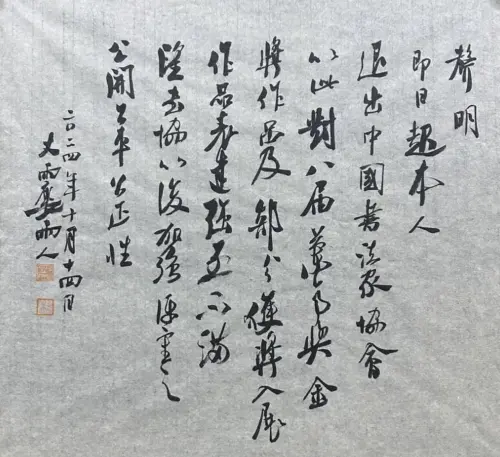 聲明
即日起本人
退出中國書法家協會
以此對八届蘭亭奖金
獎作品及部分獲獎入展
作品表達强烈不满
望书協以後加强评审之
公開公平公正性
二〇二四年十月十四日
雨人